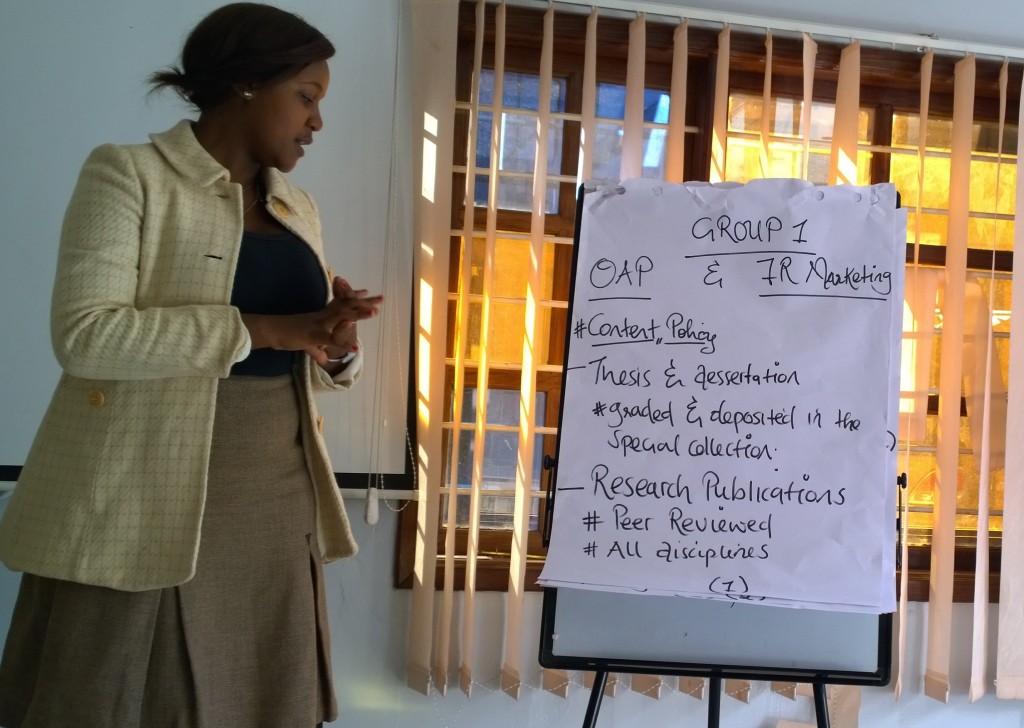 GROUP 1
OAP & IR Marketing
# Content Policy
- Thesis & dessertation
# graded & deposited in the
special collection.
- Research Publications
# Peer Reviewed
# All disciplines
(1)